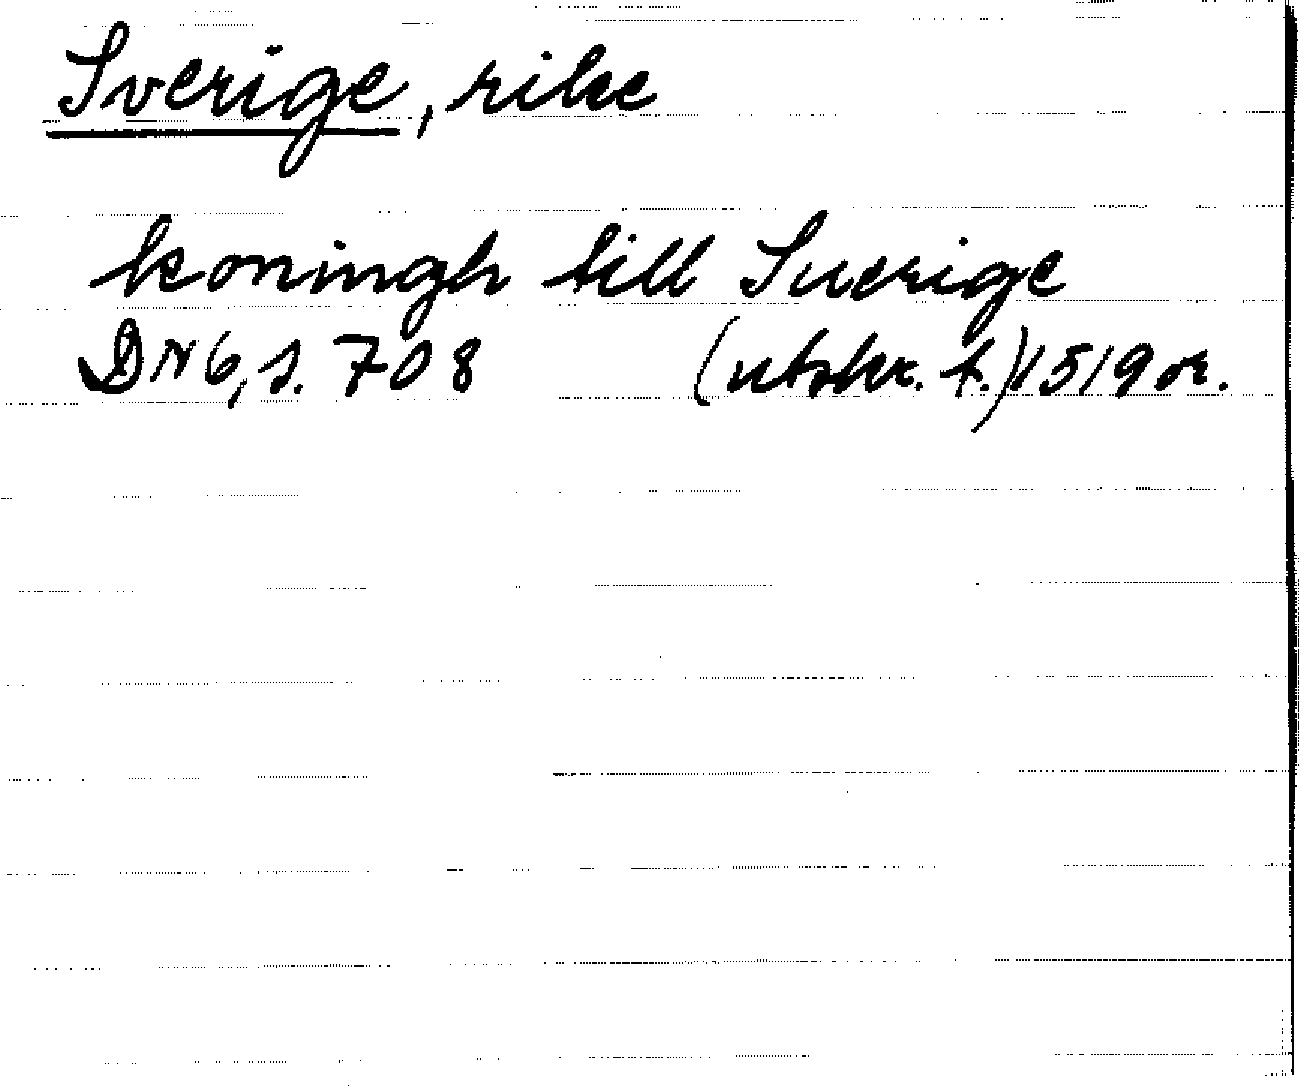 Sverige, rike
koningh till Suerige
DN 6, s. 708 (utskr. f.) 1519 or.